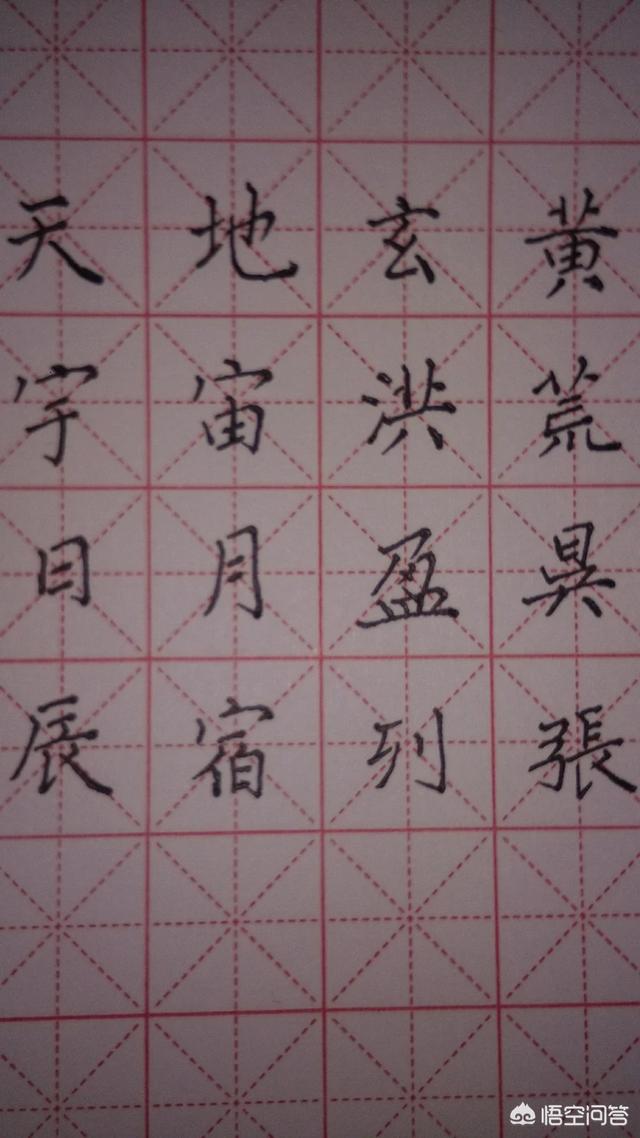 天地玄黃
宇宙洪荒
日月盈昃
辰宿列張
悟空问答